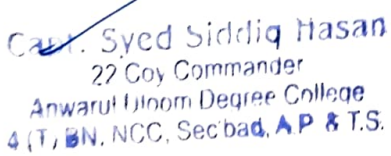 Capt. Syed Siddiq Hasan
22 Coy Commander
Anwarul Uloom Degree College
4 (T) BN. NCC, Sec'bad, A.P & T.S.